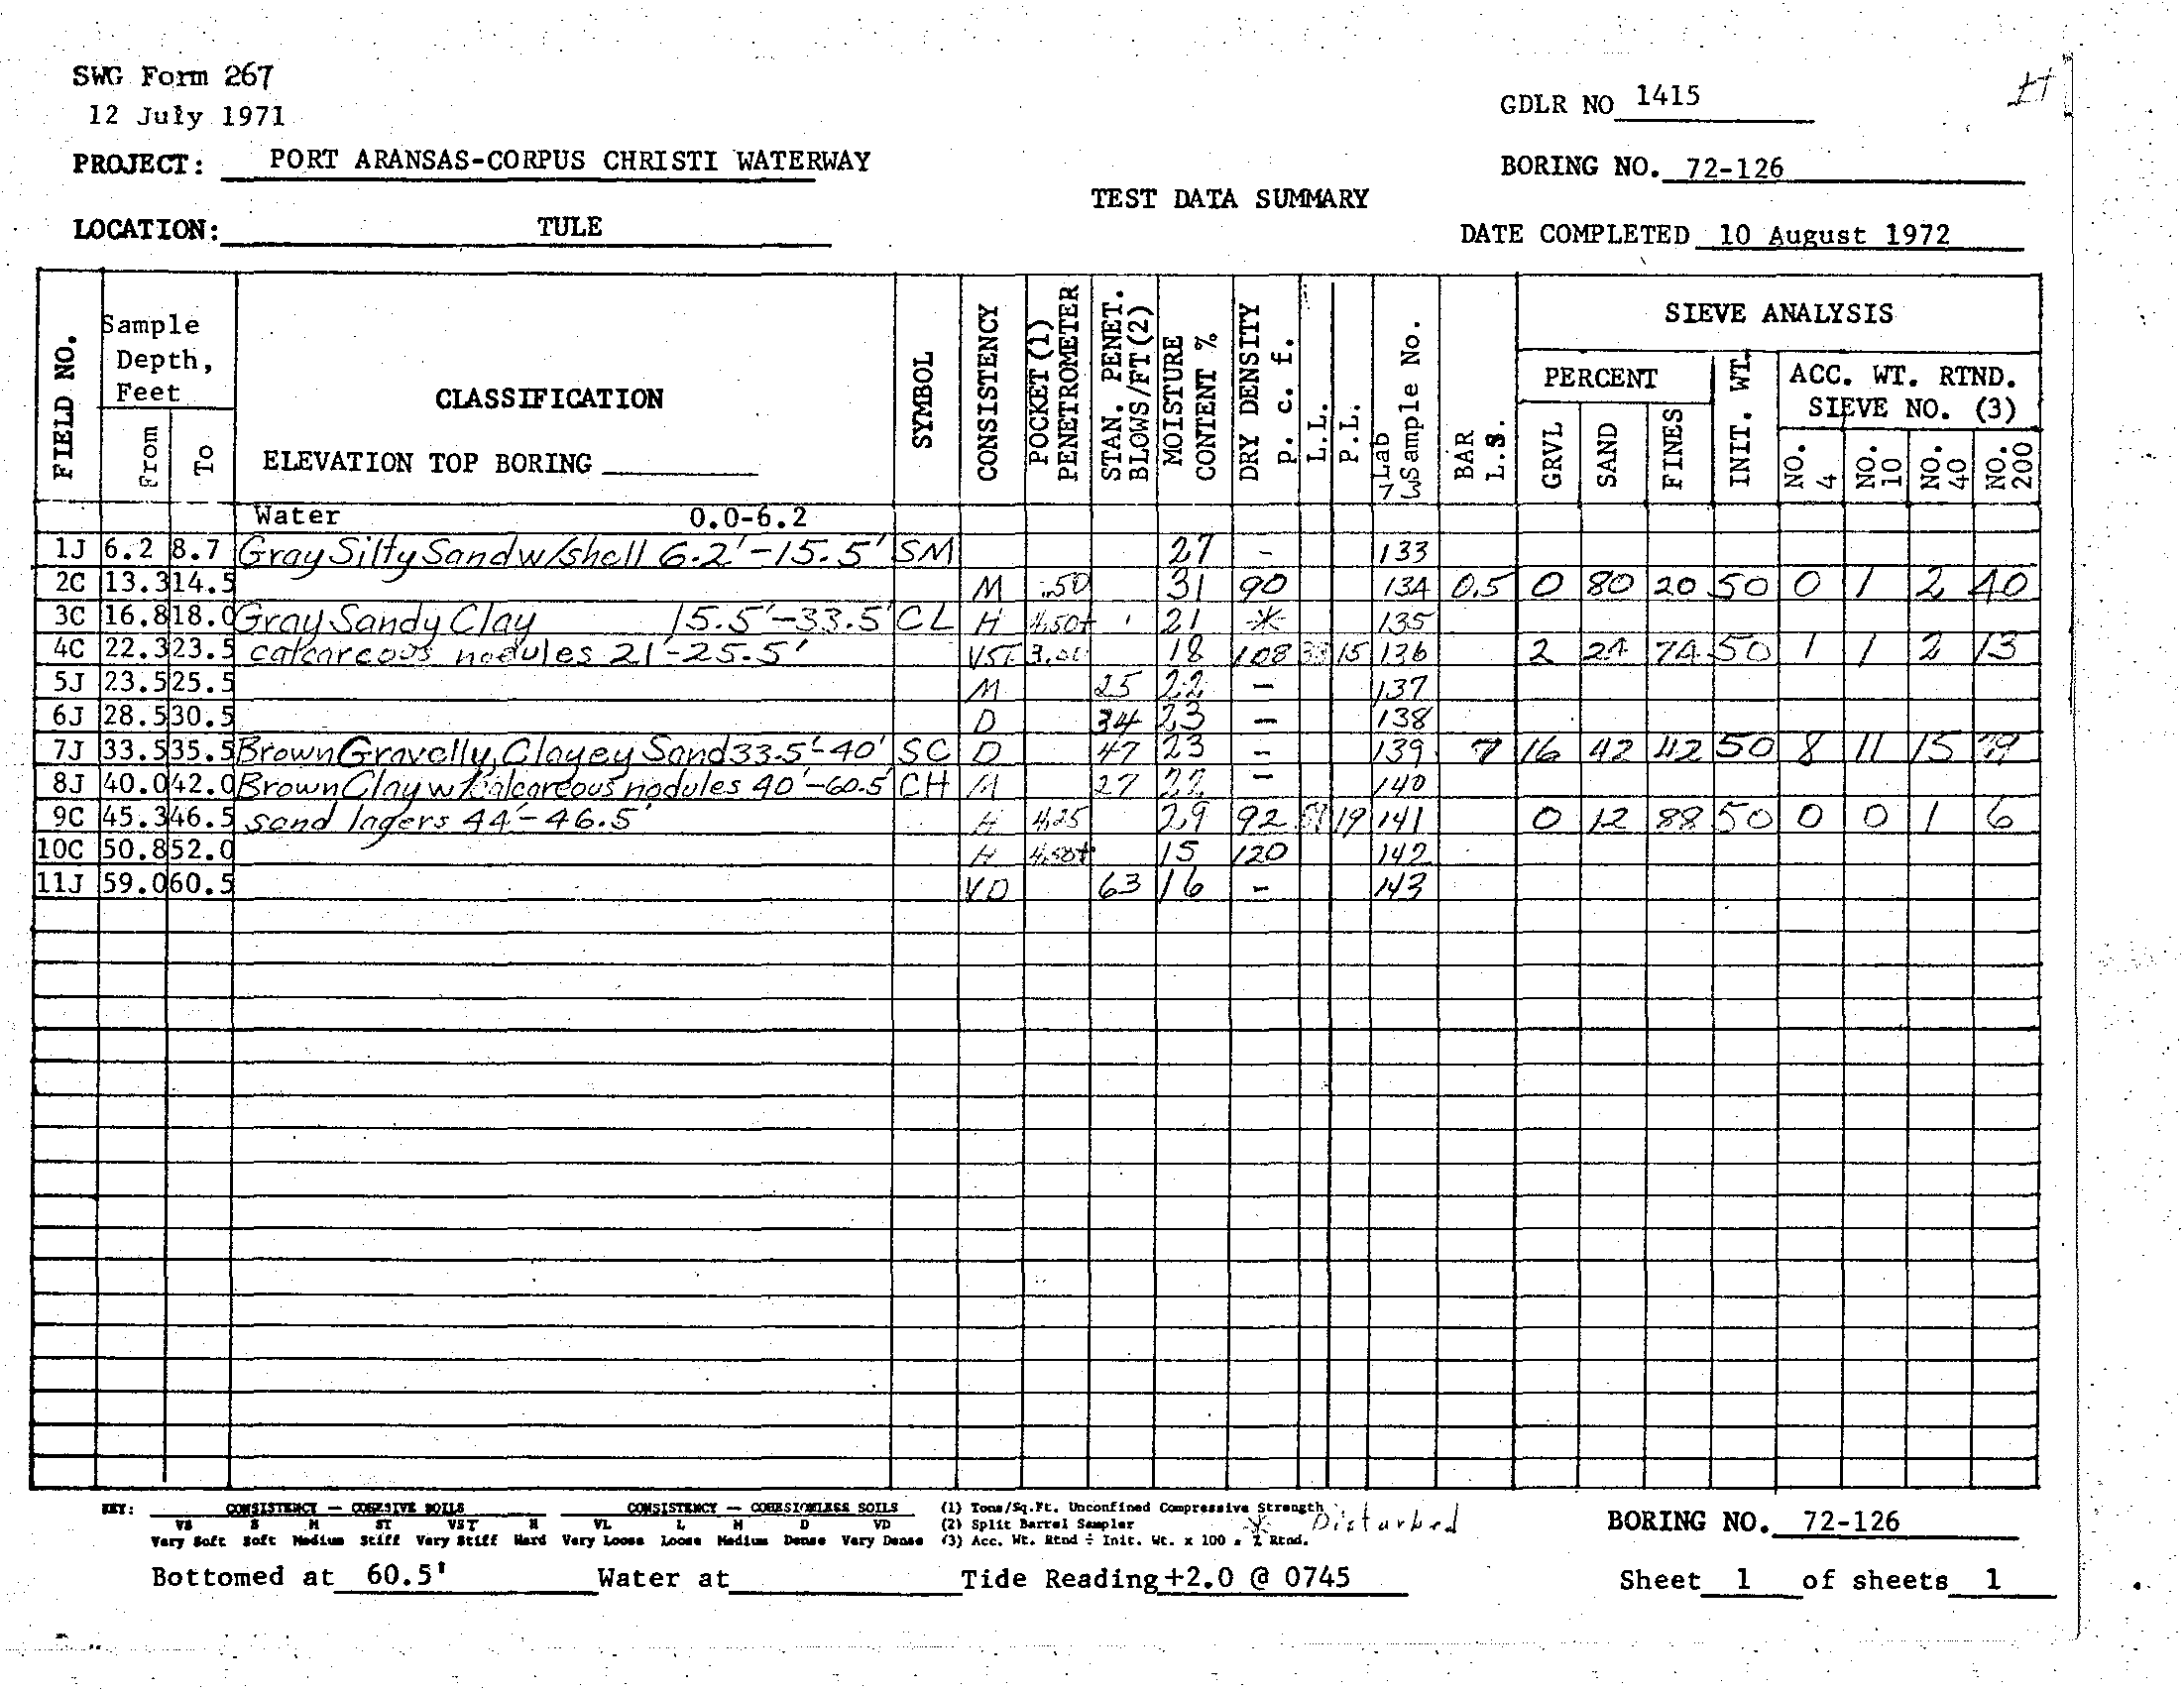 SWG Form 267
12 July 1971
GDLR NO 1415
PROJECT: PORT ARANSAS-CORPUS CHRISTI WATERWAY
BORING NO. 72-126
TEST DATA SUMMARY
LOCATION: TULE
DATE COMPLETED 10 August 1972
FIELD NO.
Sample Depth, Feet
From
To
CLASSIFICATION
ELEVATION TOP BORING
SYMBOL
CONSISTENCY
POCKET (1) PENETROMETER
STAN. PENET. BLOWS/FT(2)
MOISTURE CONTENT %
DRY DENSITY p. c. f.
L.L.
P.L.
Lab Sample No.
BAR L.S.
SIEVE ANALYSIS
PERCENT
GRVL
SAND
FINES
INIT. WT.
ACC. WT. RTND. SIEVE NO. (3)
NO. 4
NO. 10
NO. 40
NO. 200
Water 0.0-6.2
1J 6.2 8.7 Gray Silty Sand w/shell 6.2'-15.5' SM 27 - 133
2C 13.3 14.5 M .50 31 90 134 0.5 0 80 20 50 0 1 2 40
3C 16.8 18.0 Gray Sandy Clay 15.5'-33.5' CL H 4.50+ 21 * 135
4C 22.3 23.5 calcareous nodules 21'-25.5' VST 3.00 18 108 33 15 136 2 24 74 50 1 1 2 13
5J 23.5 25.5 M 25 22 - 137
6J 28.5 30.5 D 34 23 - 138
7J 33.5 35.5 Brown Gravelly, Clayey Sand 33.5'-40' SC D 47 23 - 139 7 16 42 42 50 8 11 15 29
8J 40.0 42.0 Brown Clay w/calcareous nodules 40'-60.5' CH M 27 22 - 140
9C 45.3 46.5 sand layers 44'-46.5' H 4.25 29 92 19 141 0 12 88 50 0 0 1 6
10C 50.8 52.0 H 4.50+ 15 120 142
11J 59.0 60.5 VD 63 16 - 143
KEY: CONSISTENCY — COHESIVE SOILS CONSISTENCY — COHESIONLESS SOILS (1) Tons/Sq.Ft. Unconfined Compressive Strength
VS S M ST VST H VL L M D VD (2) Split Barrel Sampler * Disturbed
Very Soft Soft Medium Stiff Very Stiff Hard Very Loose Loose Medium Dense Very Dense (3) Acc. Wt. Rtnd ÷ Init. Wt. x 100 = % Rtnd.
BORING NO. 72-126
Bottomed at 60.5' Water at Tide Reading +2.0 @ 0745 Sheet 1 of sheets 1